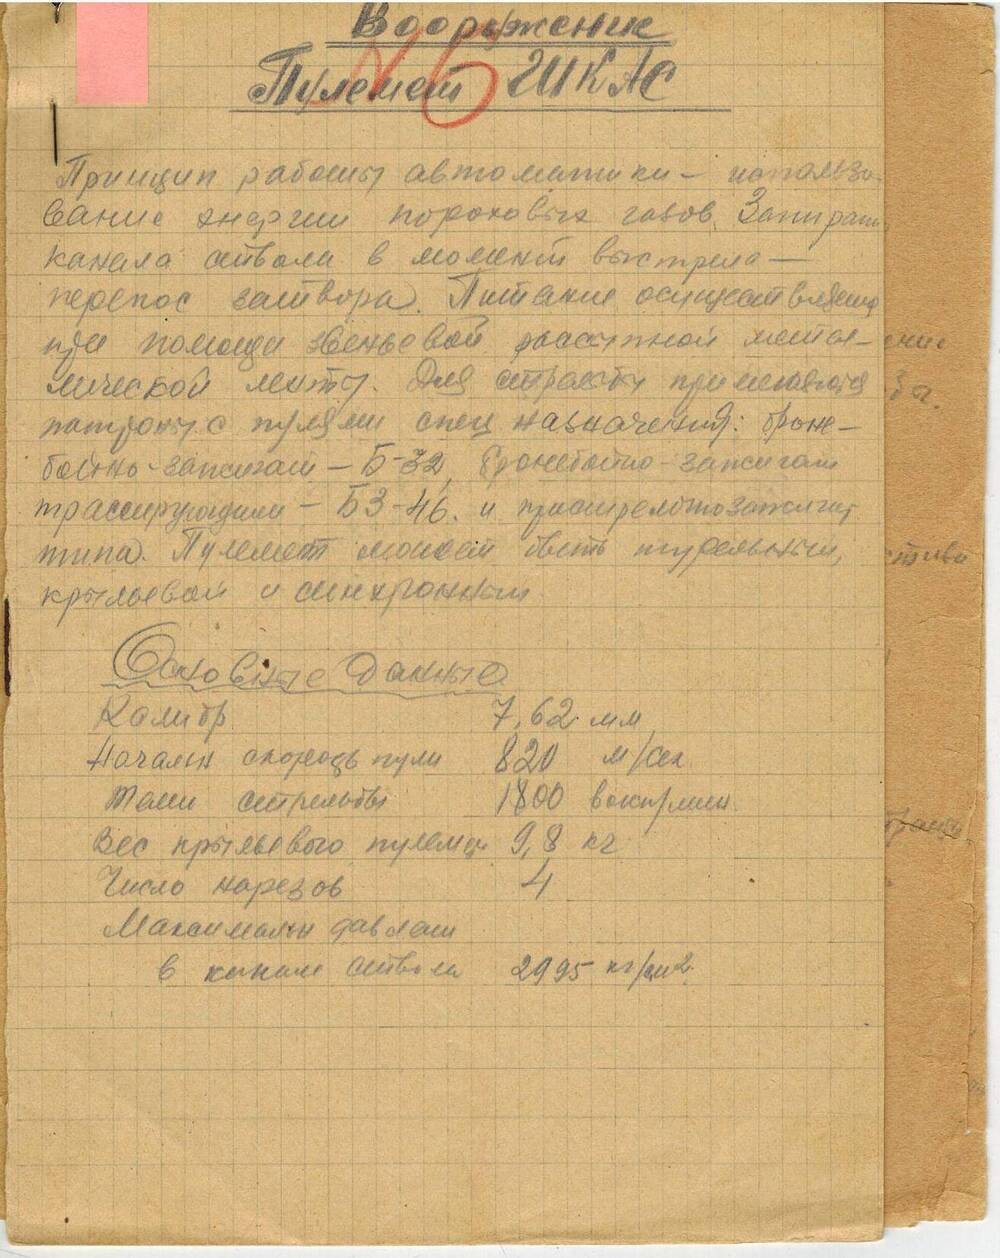 Вооружение
Пулемет ШКАС
№6
Принцип работы автоматики – использо-
вание энергии пороховых газов. Запиран
канала ствола в момент выстрела –
перекос затвора. Питание осуществляется
при помощи звеньевой рассыпной метал-
лической ленты. Для стрельбы применяются
патроны с пулями спец назначения: броне-
бойно-зажигат – Б-32, бронебойно-зажигат
трассирующими – БЗ-46. и пристрелочнозажигат
типа. Пулемет может быть турельным,
крыльевой и синхронным.
Основные данные
Калибр 7,62 мм
Начальн скорость пули 820 м/сек
Темп стрельбы 1800 в окр/мин.
Вес крыльевого пулемета 9,8 кг
Число нарезов 4
Максимальн давлен
в канале ствола 2995 кг/см2.